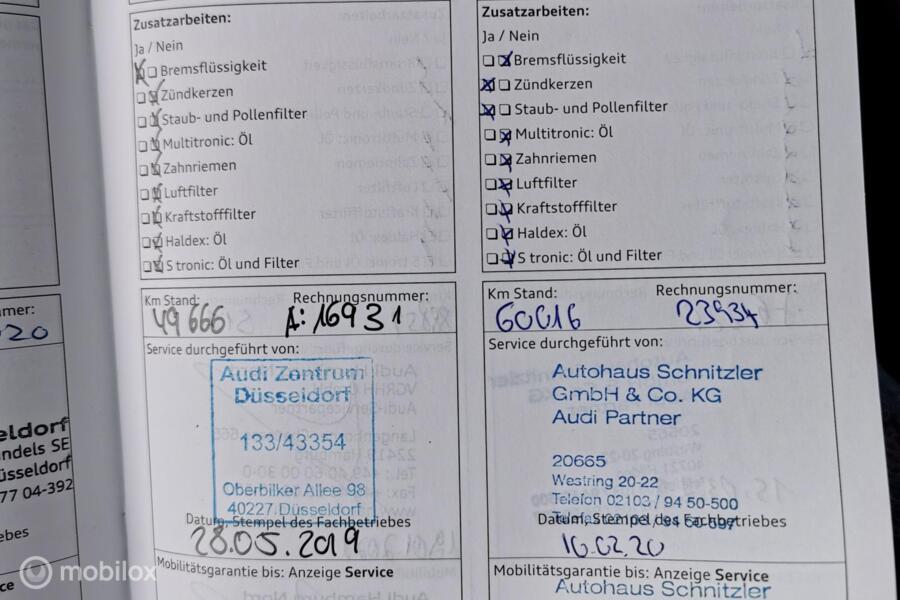 Zusatzarbeiten:
Ja / Nein
Bremsflüssigkeit
Zündkerzen
Staub- und Pollenfilter
Multitronic: Öl
Zahnriemen
Luftfilter
Kraftstofffilter
Haldex: Öl
S tronic: Öl und Filter
Km Stand: Rechnungsnummer:
49 666 A: 16931
Service durchgeführt von:
Audi Zentrum
Düsseldorf
133/43354
Oberbilker Allee 98
40227 Düsseldorf
Datum, Stempel des Fachbetriebes
28.05.2019
Mobilitätsgarantie bis: Anzeige Service
Zusatzarbeiten:
Ja / Nein
Bremsflüssigkeit
Zündkerzen
Staub- und Pollenfilter
Multitronic: Öl
Zahnriemen
Luftfilter
Kraftstofffilter
Haldex: Öl
S tronic: Öl und Filter
Km Stand: Rechnungsnummer:
60016 23934
Service durchgeführt von:
Autohaus Schnitzler
GmbH & Co. KG
Audi Partner
20665
Westring 20-22
Telefon 02103 / 94 50-500
Datum, Stempel des Fachbetriebes
10.02.20
Mobilitätsgarantie bis: Anzeige Service
Autohaus Schnitzler
mer:
20
eldorf
ndels SE
üsseldorf
77 04-392
ebes
ce
mobilox